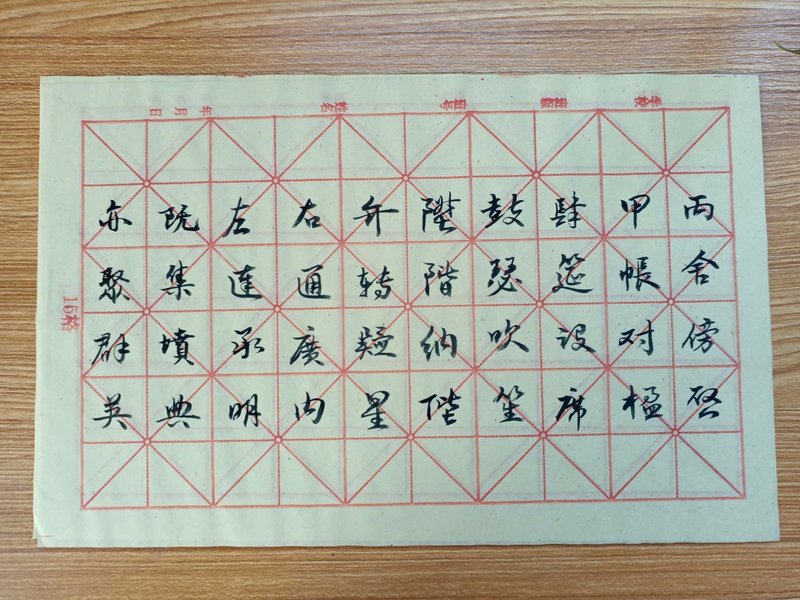 学校
班级
姓名
年 月 日
丙舍傍啓
甲帳对楹
肆筵設席
鼓瑟吹笙
陞階納陛
弁轉疑星
右通廣内
左達承明
既集墳典
亦聚群英
16格